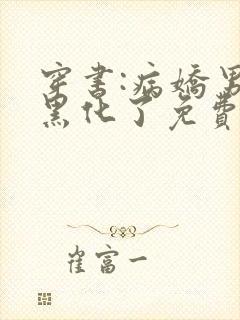 穿书:病娇男
黑化了免费
崔富一